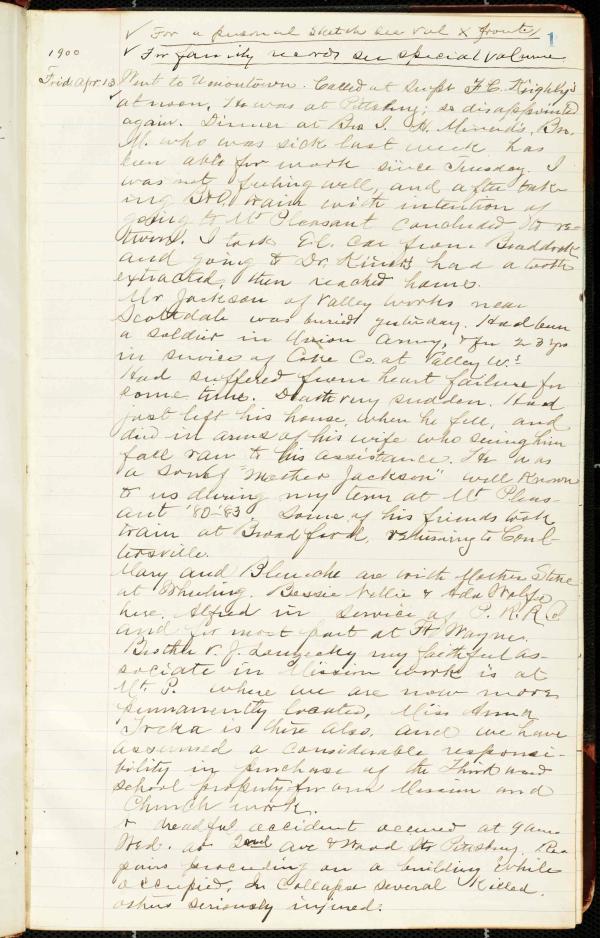 ✓ For a personal sketch see Vol X front/
1
1900
✓ For family records see special volume
Frid. Apr. 13 Went to Uniontown. Called at Supt F. C. Keighly's
at noon. He was at Pittsburg; so disappointed
again. Dinner at Bro I. H. Bro.
M. who was sick last week has
been able for work since Tuesday. I
was not feeling well, and after tak-
ing B&O. train with intention of
going to Mt Pleasant concluded to re-
turn. I took El. car from Braddock
and going to Dr. had a tooth
extracted, then reached home.
Mr Jackson of Valley Works near
Scottdale was buried yesterday. Had been
a soldier in Union Army, & for 23 yrs
in service of Coke Co. at Valley W.s
Had suffered from heart failure for
some time. Death very sudden. Had
just left his house, when he fell, and
died in arms of his wife who seeing him
fall ran to his assistance. He was
a son of "Mother Jackson" well known
to us during my term at Mt Pleas-
ant '80-'83 Some of his friends took
train at Broad ford, returning to Coul-
tersville.
Mary and Blanche are with Mother Stone
at Wheeling. Bessie Nellie & Ada Wolfe
here. Alfred in service of P. R. R. Co.
and for most part at Ft Wayne.
Brother V. J. my faithful as-
sociate in Mission work is at
Mt. P. where we are now more
permanently located. Miss Anna
is there also, and we have
assumed a considerable responsi-
bility in purchase of the Third ward
school property for our Mission and
Church work.
A dreadful accident occured at 9 am
Wed. at 2nd Ave & Wood St. Pittsburg. Re-
pairs proceeding on a building while
occupied. In collapse several killed.
others seriously injured.